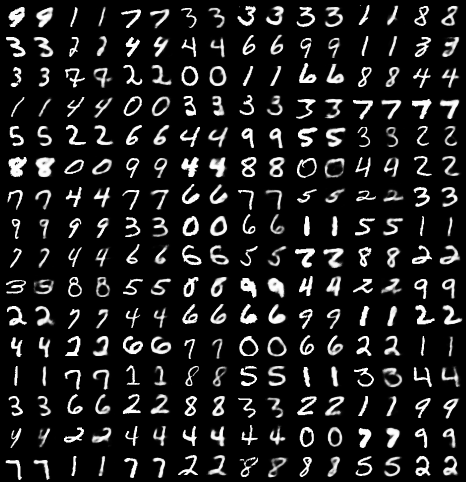 9 9 1 1 7 7 3 3 3 3 3 3 1 1 8 8
3 3 2 2 4 4 4 4 6 6 9 9 1 1 3 3
3 3 7 7 2 2 0 0 1 1 6 6 8 8 4 4
1 1 4 4 0 0 3 3 3 3 3 3 7 7 7 7
5 5 2 2 6 6 4 4 9 9 5 5 3 3 2 2
8 8 0 0 9 9 4 4 8 8 0 0 4 4 2 2
7 7 4 4 7 7 6 6 7 7 5 5 2 2 3 3
9 9 9 9 3 3 0 0 6 6 1 1 5 5 1 1
7 7 4 4 6 6 6 6 5 5 7 7 8 8 2 2
3 3 8 8 5 5 8 8 9 9 4 4 2 2 9 9
2 2 7 7 4 4 6 6 6 6 9 9 1 1 2 2
4 4 2 2 6 6 7 7 0 0 6 6 2 2 1 1
1 1 7 7 1 1 8 8 5 5 1 1 3 3 4 4
3 3 6 6 2 2 8 8 3 3 2 2 1 1 9 9
4 4 2 2 4 4 4 4 4 4 0 0 7 7 9 9
7 7 1 1 7 7 2 2 8 8 8 8 5 5 2 2